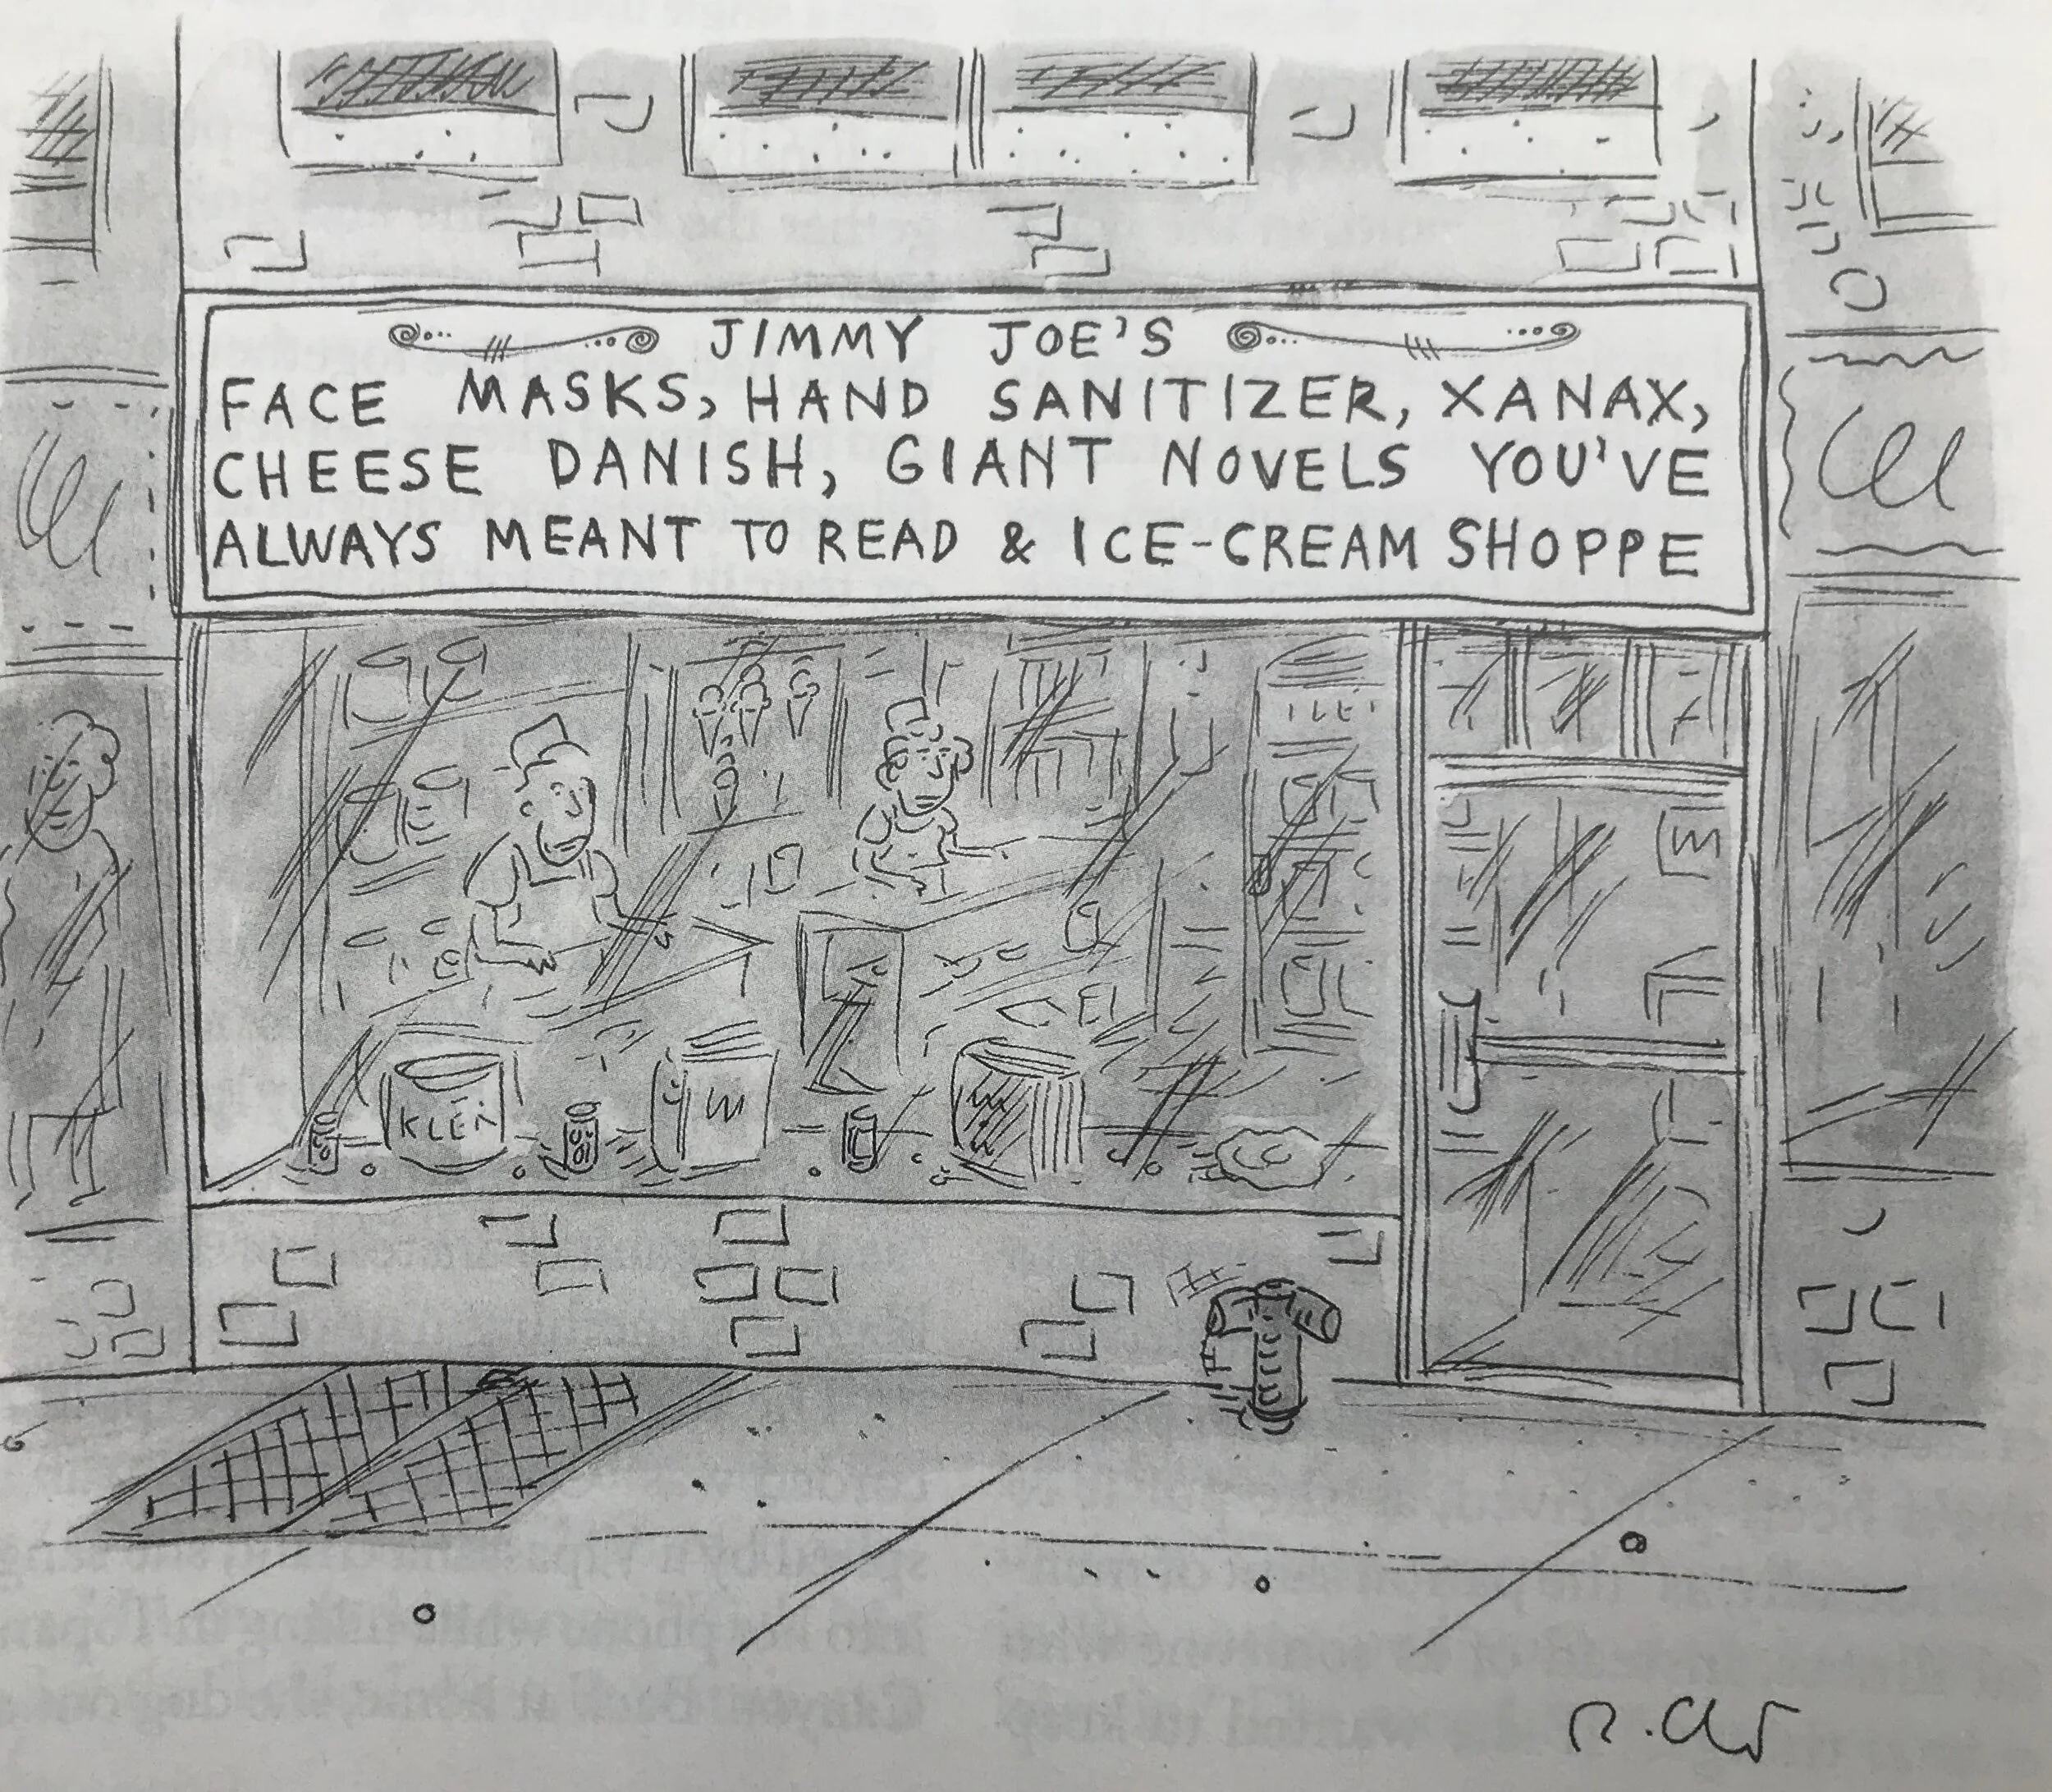 JIMMY JOE'S
FACE MASKS, HAND SANITIZER, XANAX,
CHEESE DANISH, GIANT NOVELS YOU'VE
ALWAYS MEANT TO READ & ICE-CREAM SHOPPE
KLEN